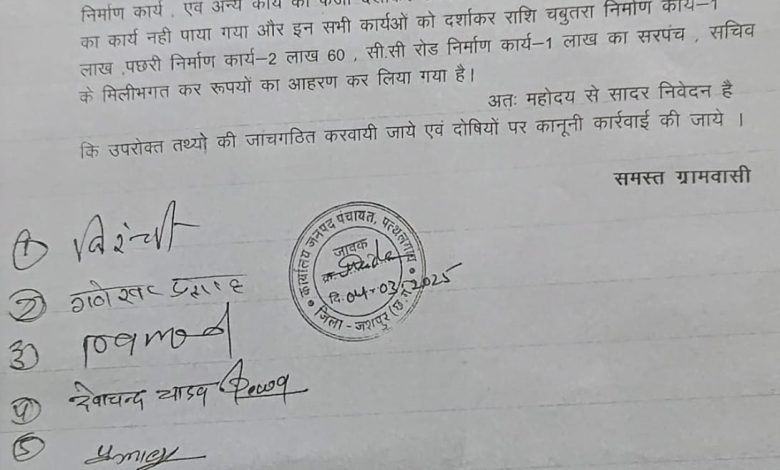 निर्माण कार्य , एवं अन्य कार्य
का कार्य नही पाया गया और इन सभी कार्यओं को दर्शाकर राशि चबुतरा निर्माण कार्य–1
लाख ,पछरी निर्माण कार्य–2 लाख 60 , सी.सी रोड निर्माण कार्य–1 लाख का सरपंच , सचिव
के मिलीभगत कर रूपयों का आहरण कर लिया गया है।
अतः महोदय से सादर निवेदन है
कि उपरोक्त तथ्यो की जांचगठित करवायी जाये एवं दोषियों पर कानूनी कार्रवाई की जाये ।
समस्त ग्रामवासी
कार्यालय जनपद पंचायत, पत्थलगांव
जावक
क्र.
दि. 04-03-2025
जिला - जशपुर (छ.ग.)
① विरंची
②
③
④ देवाचन्द यादव
⑤